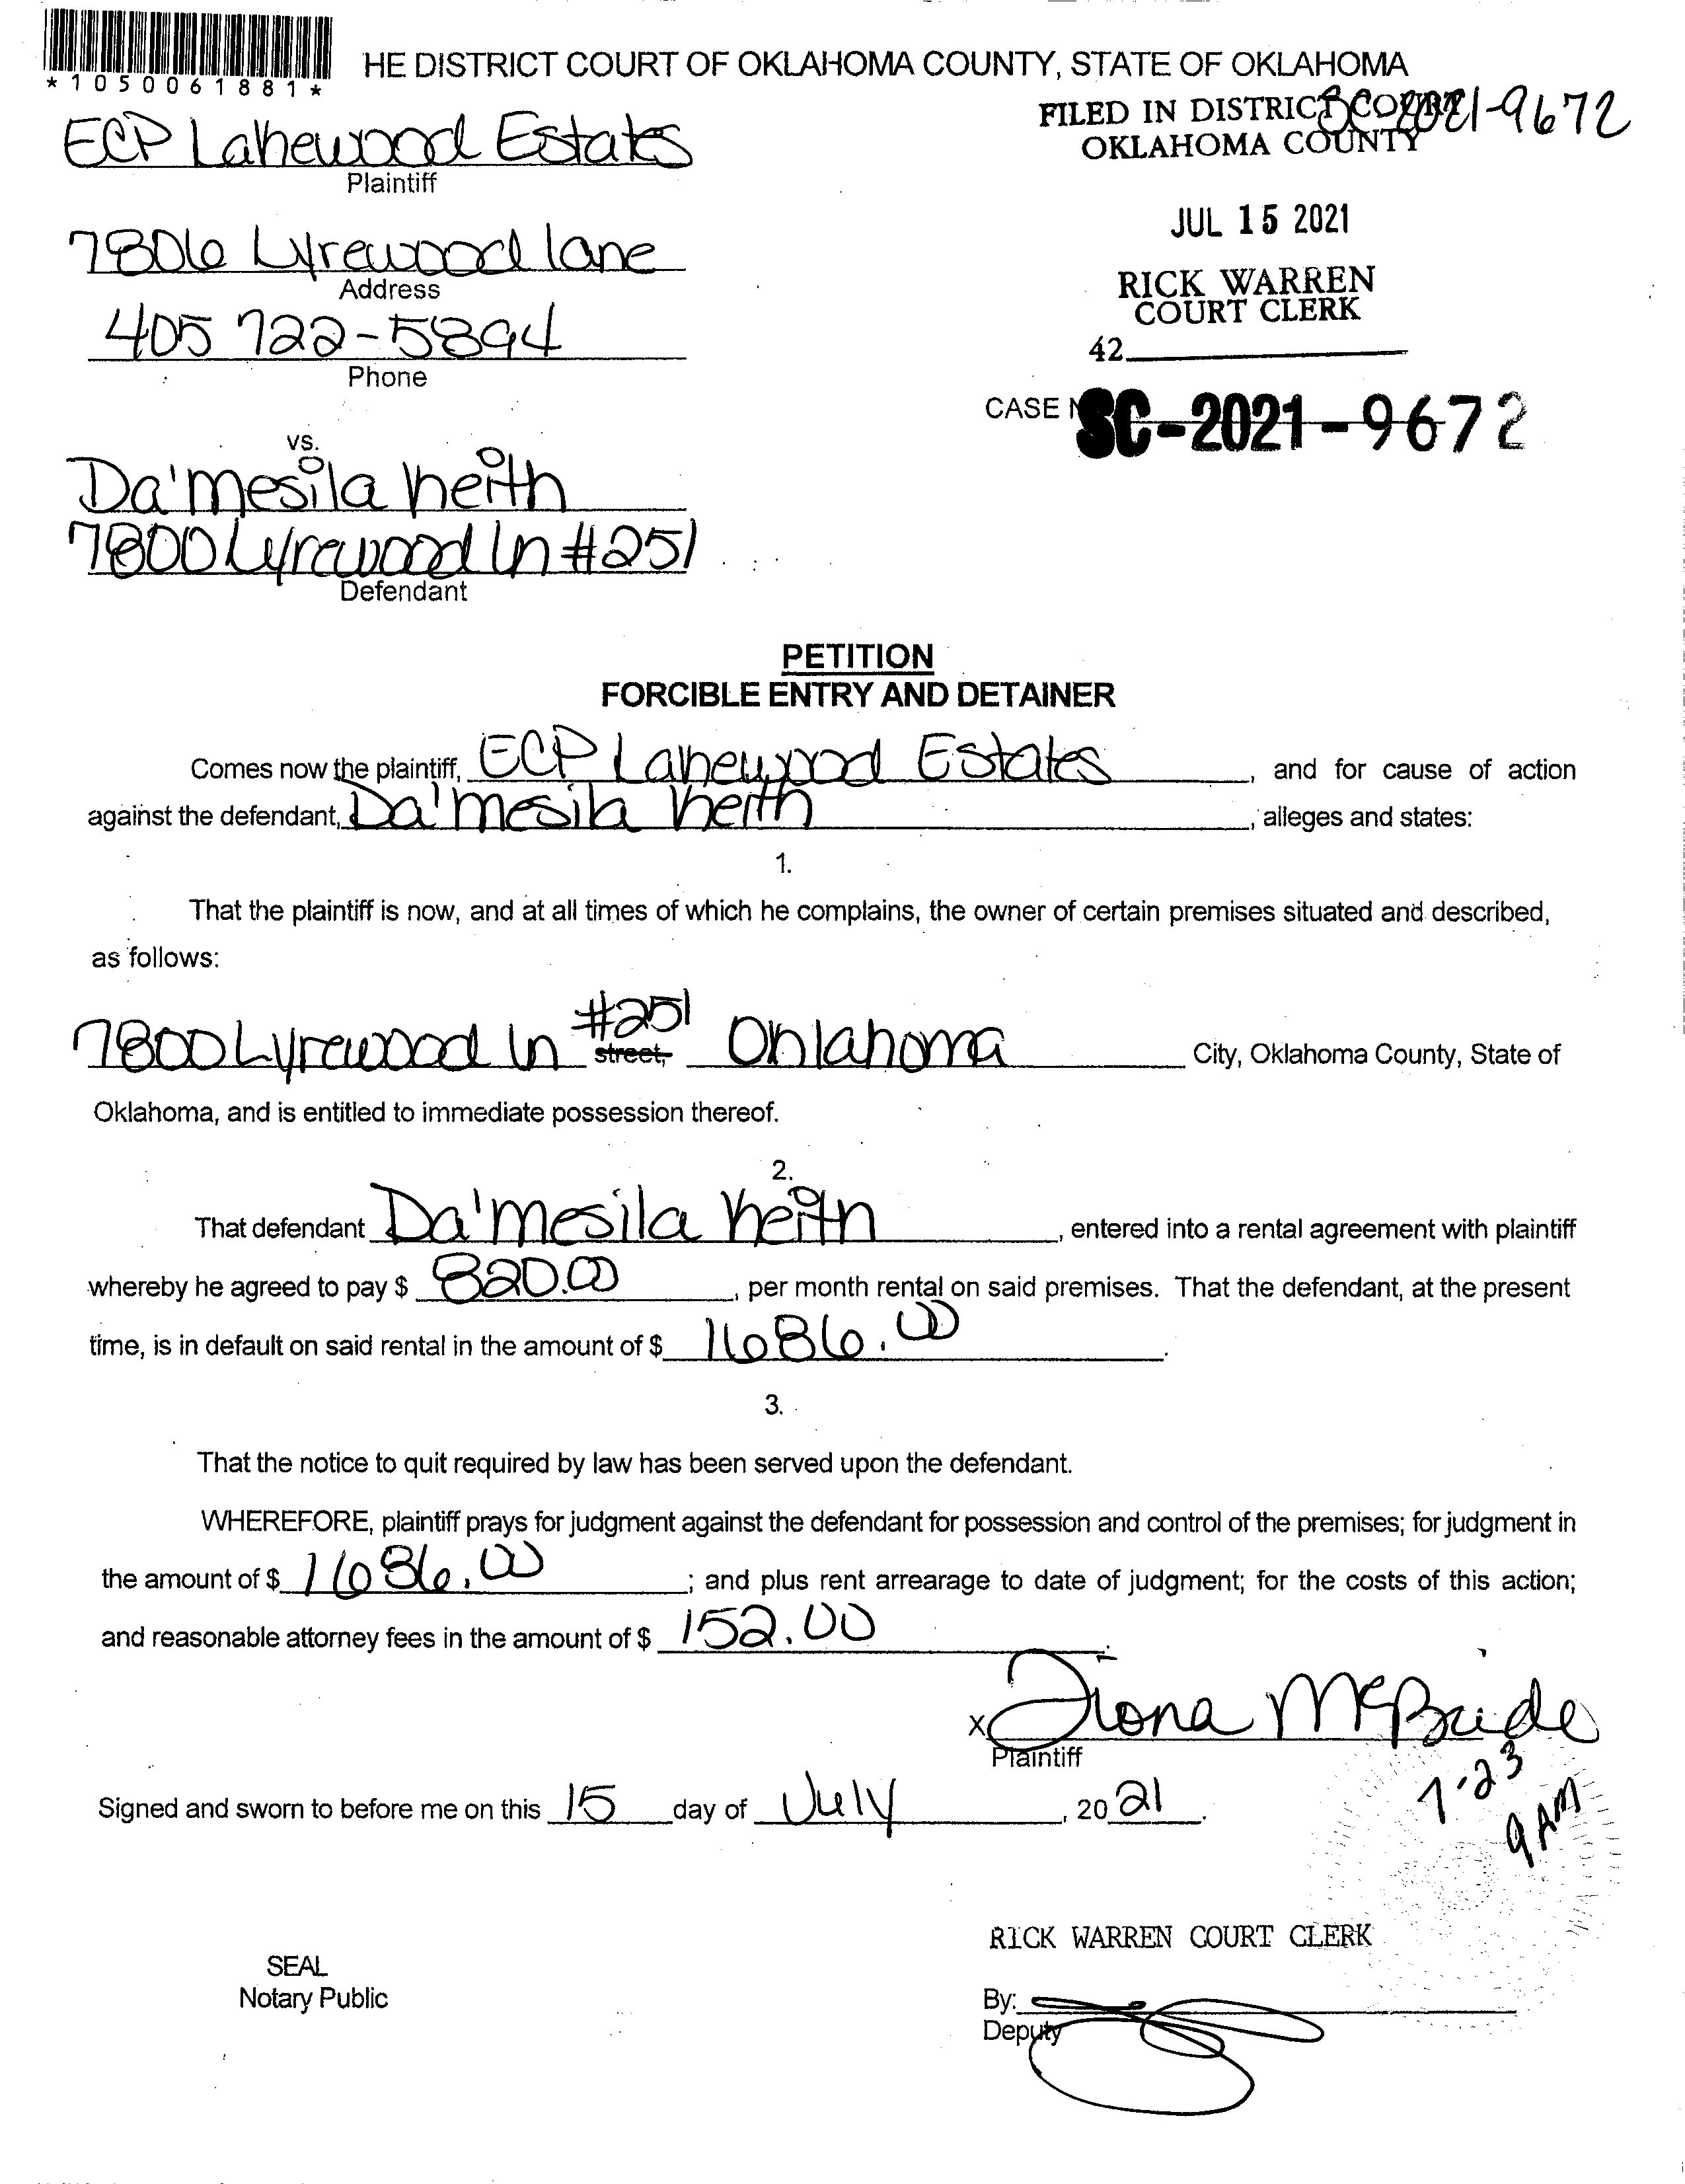 *1050061881*
HE DISTRICT COURT OF OKLAHOMA COUNTY, STATE OF OKLAHOMA
FILED IN DISTRICT COURT
SC-2021-9672
OKLAHOMA COUNTY
ECP Lakewood Estates
Plaintiff
JUL 15 2021
7806 Lyrewood lane
Address
RICK WARREN
COURT CLERK
405 722-5894
Phone
42
CASE N
SC-2021-9672
vs.
Da'mesila Keith
7800 Lyrewood ln #251
Defendant
PETITION
FORCIBLE ENTRY AND DETAINER
Comes now the plaintiff, ECP Lakewood Estates, and for cause of action
against the defendant, Da'mesila Keith, alleges and states:
1.
That the plaintiff is now, and at all times of which he complains, the owner of certain premises situated and described,
as follows:
7800 Lyrewood ln #251 street, Oklahoma City, Oklahoma County, State of
Oklahoma, and is entitled to immediate possession thereof.
2.
That defendant Da'mesila Keith, entered into a rental agreement with plaintiff
whereby he agreed to pay $ 820.00, per month rental on said premises. That the defendant, at the present
time, is in default on said rental in the amount of $ 1686.00.
3.
That the notice to quit required by law has been served upon the defendant.
WHEREFORE, plaintiff prays for judgment against the defendant for possession and control of the premises; for judgment in
the amount of $ 1686.00; and plus rent arrearage to date of judgment; for the costs of this action;
and reasonable attorney fees in the amount of $ 152.00.
x Fiona McBride
Plaintiff
7-23
9 AM
Signed and sworn to before me on this 15 day of July, 2021.
RICK WARREN COURT CLERK
SEAL
Notary Public
By:
Deputy